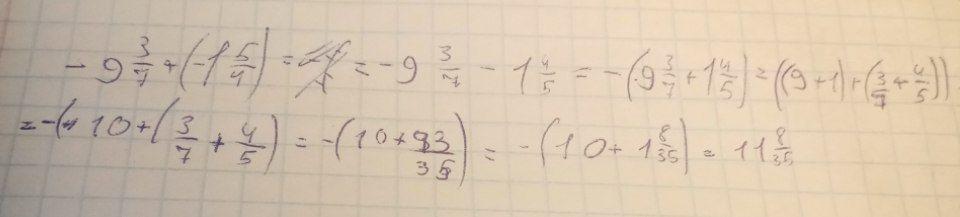 - 9 3/7 + (-1 5/4) = = -9 3/7 - 1 4/5 = -(9 3/7 + 1 4/5) = ((9+1)+(3/7+4/5))
= -(10+(3/7+4/5) = -(10+93/35) = -(10+1 8/35) = 11 8/35